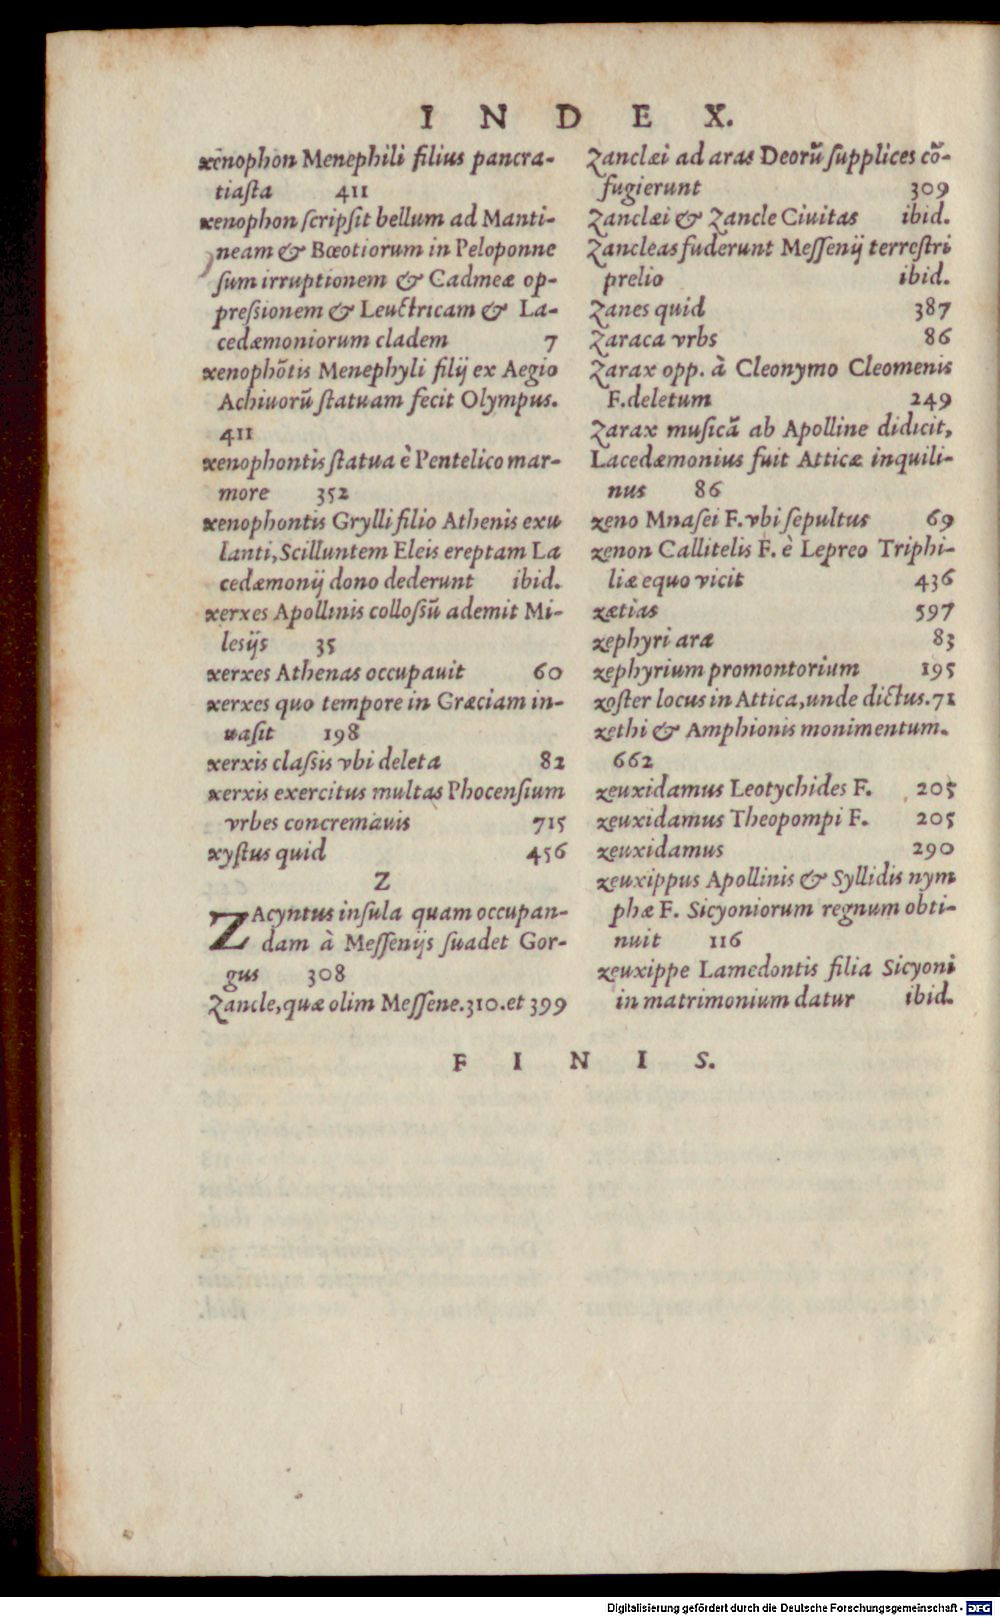 INDEX.
xenophon Menephili filius pancra-
tiaſta 411
xenophon ſcripſit bellum ad Manti-
neam & Bœotiorum in Peloponne
ſum irruptionem & Cadmeæ op-
preſsionem & Leuctricam & La-
cedæmoniorum cladem 7
xenophõtis Menephyli filij ex Aegio
Achiuorũ ſtatuam fecit Olympus.
411
xenophontis ſtatua è Pentelico mar-
more 352
xenophontis Grylli filio Athenis exu
lanti, Scilluntem Eleis ereptam La
cedæmonij dono dederunt ibid.
xerxes Apollinis colloſsũ ademit Mi-
leſijs 35
xerxes Athenas occupauit 60
xerxes quo tempore in Græciam in-
uaſit 198
xerxis claſsis vbi deleta 82
xerxis exercitus multas Phocenſium
vrbes concremauis 715
xyſtus quid 456
Z
ZAcyntus inſula quam occupan-
dam à Meſſenijs ſuadet Gor-
gus 308
Zancle, quæ olim Meſſene. 310. et 399
Zanclæi ad aras Deorũ ſupplices cõ-
fugierunt 309
Zanclæi & Zancle Ciuitas ibid.
Zancleas fuderunt Meſſenij terreſtri
prelio ibid.
Zanes quid 387
Zaraca vrbs 86
Zarax opp. à Cleonymo Cleomenis
F. deletum 249
Zarax muſicã ab Apolline didicit,
Lacedæmonius fuit Atticæ inquili-
nus 86
zeno Mnaſei F. vbi ſepultus 69
zenon Callitelis F. è Lepreo Triphi-
liæ equo vicit 436
zætias 597
zephyri aræ 83
zephyrium promontorium 195
zoſter locus in Attica, unde dictus. 71
zethi & Amphionis monimentum.
662
zeuxidamus Leotychides F. 205
zeuxidamus Theopompi F. 205
zeuxidamus 290
zeuxippus Apollinis & Syllidis nym
phæ F. Sicyoniorum regnum obti-
nuit 116
zeuxippe Lamedontis filia Sicyoni
in matrimonium datur ibid.
FINIS.
Digitalisierung gefördert durch die Deutsche Forschungsgemeinschaft - DFG